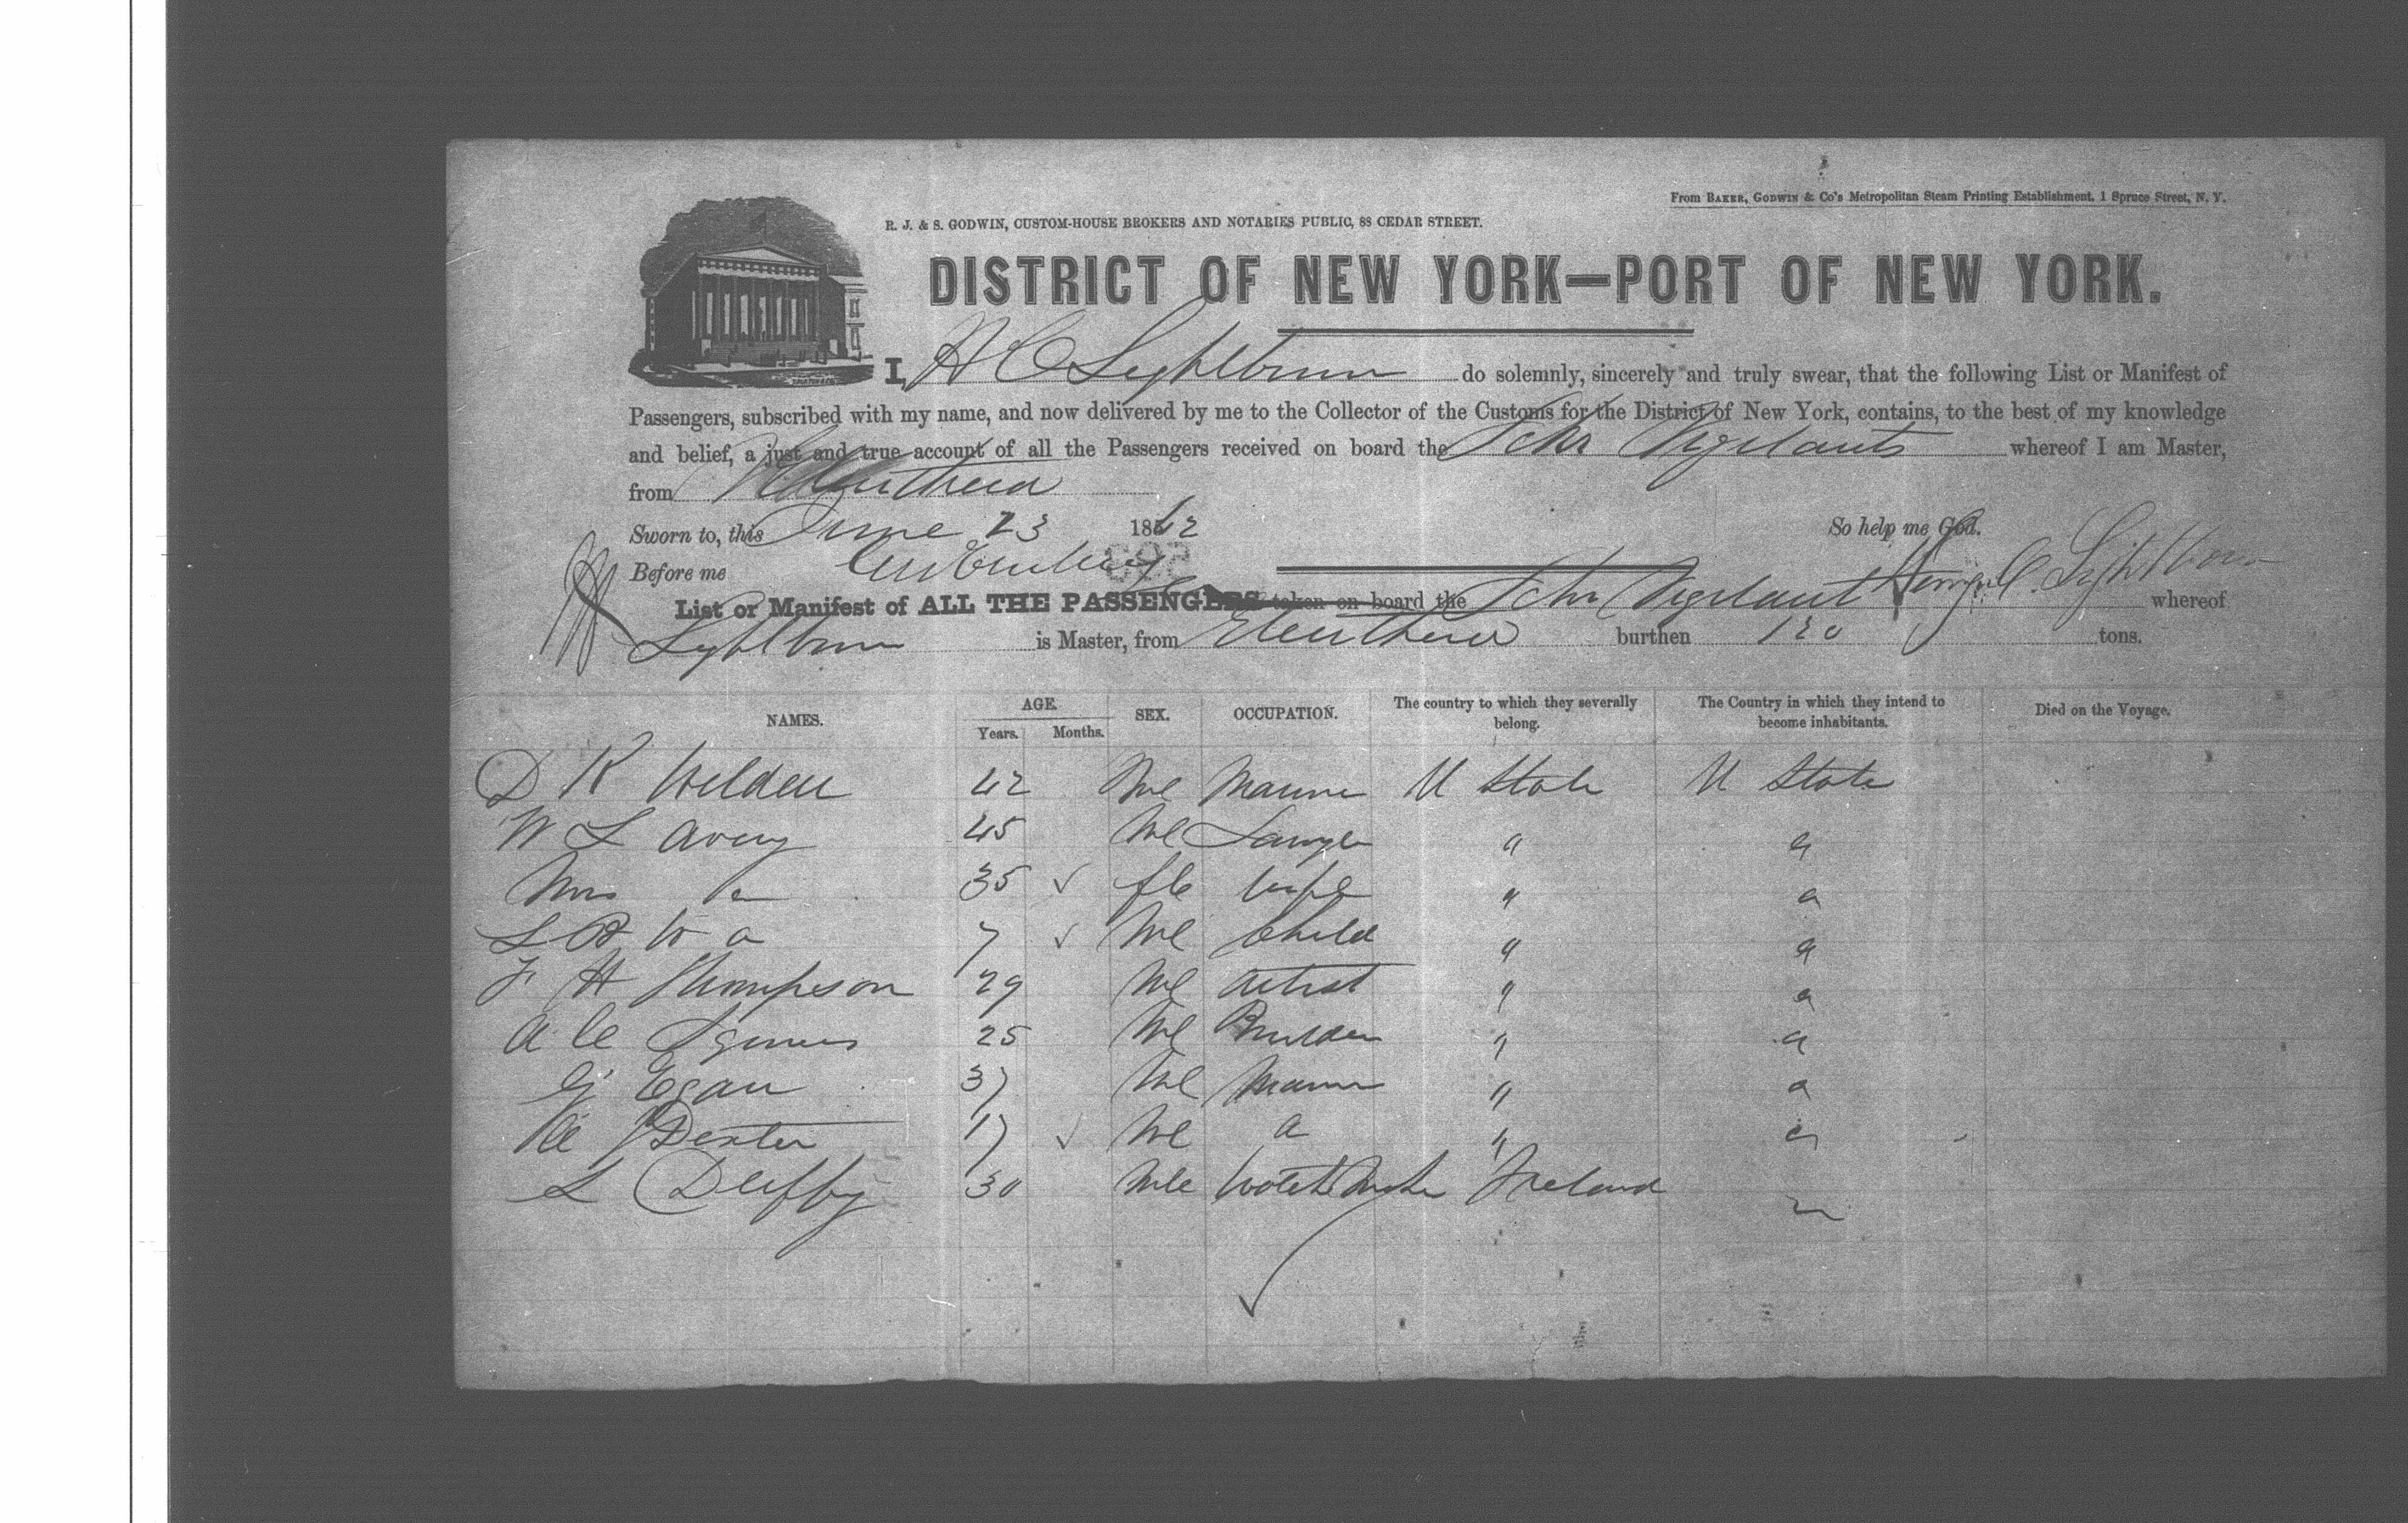 From BAKER, GODWIN & Co's Metropolitan Steam Printing Establishment, 1 Spruce Street, N. Y.
R. J. & S. GODWIN, CUSTOM-HOUSE BROKERS AND NOTARIES PUBLIC, 88 CEDAR STREET.
DISTRICT OF NEW YORK—PORT OF NEW YORK.
I, H C Lightbourn do solemnly, sincerely and truly swear, that the following List or Manifest of
Passengers, subscribed with my name, and now delivered by me to the Collector of the Customs for the District of New York, contains, to the best of my knowledge
and belief, a just and true account of all the Passengers received on board the Schr Vigilant whereof I am Master,
from Eleuthera
Sworn to, this June 23 1862 So help me God.
Before me
List or Manifest of ALL THE PASSENGERS taken on board the Schr Vigilant whereof
Lightbourn is Master, from Eleuthera burthen 120 tons.
NAMES. AGE. Years. Months. SEX. OCCUPATION. The country to which they severally belong. The Country in which they intend to become inhabitants. Died on the Voyage.
D K Welden 42 Mle Marine U State U State
W L Avery 45 Mle Lawyer " "
Mrs " 35 fle wife " "
7 Mle Child " "
F H Thompson 29 Mle Artist " "
A C 25 Mle Builder " "
G Egan 37 Mle Marin " "
J Dexter 17 Mle " " "
L Duffy 30 Mle Ireland "